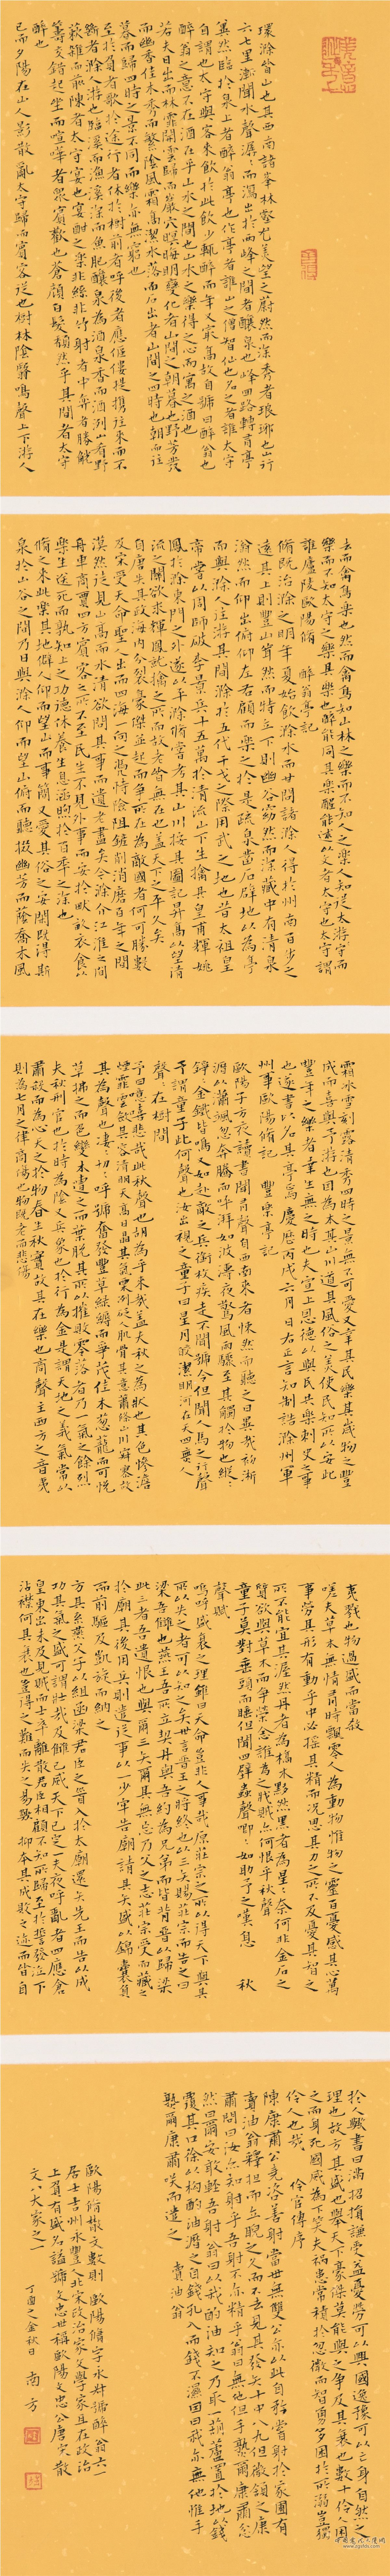 環滁皆山也其西南諸峯林壑尤美望之蔚然而深秀者琅琊也山行
六七里漸聞水聲潺〻而瀉出於兩峰之間者釀泉也峰回路轉有亭
翼然臨於泉上者醉翁亭也作亭者誰山之僧智仙也名之者誰太守
自謂也太守與客來飲於此飲少輒醉而年又最高故自號曰醉翁也
醉翁之意不在酒在乎山水之間也山水之樂得之心而寓之酒也
若夫日出而林霏開雲歸而巖穴暝晦明變化者山間之朝暮也野芳發
而幽香佳木秀而繁陰風霜高潔水落而石出者山間之四時也朝而往
暮而歸四時之景不同而樂亦無窮也
至於負者歌於途行者休於樹前者呼後者應傴僂提攜往來而不
絕者滁人游也臨溪而漁溪深而魚肥釀泉為酒泉香而酒洌山肴野
蔌雜而前陳者太守宴也宴酣之樂非絲非竹射者中弈者勝觥
籌交錯起坐而喧嘩者眾賓歡也蒼顏白髮頹然乎其間者太守
醉也
已而夕陽在山人影散亂太守歸而賓客從也樹林陰翳鳴聲上下游人
去而禽鳥樂也然而禽鳥知山林之樂而不知人之樂人知從太守游而
樂而不知太守之樂其樂也醉能同其樂醒能述以文者太守也太守謂
誰廬陵歐陽脩 醉翁亭記
脩既治滁之明年夏始飲滁水而甘問諸滁人得於州南百步之
遠其上則豐山聳然而特立下則幽谷窈然而深藏中有清泉
滃然而仰出俯仰左右顧而樂之於是疏泉鑿石闢地以為亭
而與滁人往游其間滁於五代干戈之際用武之地也昔太祖皇
帝嘗以周師破李景兵十五萬於清流山下生擒其皇甫輝姚
鳳於滁東門之外遂以平滁脩嘗考其山川按其圖記昇高以望清
流之關欲求輝鳳就擒之所而故老皆無在也蓋天下之平久矣
自唐失其政海內分裂豪傑並起而爭所在為敵國者何可勝數
及宋受天命聖人出而四海一向之憑恃險阻鏟削消磨百年之間
漠然徒見山高而水清欲問其事而遺老盡矣今滁介江淮之間
舟車商賈四方賓客之所不至民生不見外事而安於畎畝衣食以
樂生送死而孰知上之功德休養生息涵煦於百年之深也
脩之來此樂其地僻人仰而望山而事簡又愛其俗之安閑既得斯
泉於山谷之間乃日與滁人仰而望山俯而聽掇幽芳而蔭喬木風
霜冰雪刻露清秀四時之景無不可愛又幸其民樂其歲物之豐
成而喜與予游也因為本其山川道其風俗之美使民知所以安此
豐年之樂者幸生無之時也夫宣上恩德以與民共樂刺史之事
也遂書以名其亭焉 慶曆丙戌六月日右正言知制誥滁州軍
州事歐陽脩記 豐樂亭記
歐陽子方夜讀書聞有聲自西南來者悚然而聽之曰異哉初淅
瀝以瀟颯忽奔騰而砰湃如波濤夜驚風雨驟至其觸於物也縱〻
錚金鐵皆鳴又如赴敵之兵銜枚疾走不聞號令但聞人馬之行聲
予謂童子此何聲也汝出視之童子曰星月皎潔明河在天四無人
聲〻在樹間
予曰噫嘻悲哉此秋聲也胡為乎來哉蓋夫秋之為狀也其色慘澹
煙霏雲斂其容清明天高日晶其氣慄冽砭人肌骨其意蕭條山川寂寥故
其為聲也凄〻切〻呼號奮發豐草綠縟而爭茂佳木蔥蘢而可悅
草拂之而色變木遭之而葉脫其所以摧敗零落者乃一氣之餘烈
夫秋刑官也於時為陰又兵象也於行為金是謂天地之義氣常以
肅殺而為心天之於物春生秋實故其在樂也商聲主西方之音夷
則為七月之律商傷也物既老而悲傷
夷戮也物過盛而當殺
嗟夫草木無情有時飄零人為動物惟物之靈百憂感其心萬
事勞其形有動乎中必搖其精而況思其力之所不及憂其智之
所不能宜其渥然丹者為槁木黟然黑者為星〻奈何非金石之
質欲與草木而爭榮念誰為之戕賊亦何恨乎秋聲
童子莫對垂頭而睡但聞四壁蟲聲唧〻如助予之嘆息 秋
聲賦
嗚呼盛衰之理雖曰天命豈非人事哉原莊宗之所以得天下與其
所以失之者可以知之矣世言晉王之將終也以三矢賜莊宗而告之曰
梁吾仇也燕王吾所立契丹與吾約為兄弟而皆背晉以歸梁
此三者吾遺恨也與爾三矢爾其無忘乃父之志莊宗受而藏之
於廟其後用兵則遣從事以一少牢告廟請其矢盛以錦囊負
而前驅及凱旋而納之
方其系燕父子以組函梁君臣之首入於太廟還矢先王而告以成
功其意氣之盛可謂壯哉及仇已滅天下已定一夫夜呼亂者四應倉
皇東出未及見賊而士卒離散君臣相顧不知所歸至於誓天斷發泣下
沾襟何其衰也豈得之難而失之易歟抑本其成敗之跡而皆自
於人歟書曰滿招損謙受益憂勞可以興國逸豫可以亡身自然之
理也故方其盛也舉天下豪傑莫能與之爭及其衰也數十伶人困
之而身死國滅為天下笑夫禍患常積於忽微而智勇多困於所溺豈獨
伶人也哉 伶官傳序
陳康肅公堯咨善射當世無雙公亦以此自矜嘗射於家圃有
賣油翁釋擔而立睨之久而不去見其發矢十中八九但微頷之康
肅問曰汝亦知射乎吾射不亦精乎翁曰無他但手熟爾康肅忿
然曰爾安敢輕吾射翁曰以我酌油知之乃取一葫蘆置於地以錢
覆其口徐以杓酌油瀝之自錢孔入而錢不濕因曰我亦無他惟手
熟爾康肅笑而遣之 賣油翁
歐陽脩散文數則 歐陽脩字永叔號醉翁六一
居士吉州永豐人北宋政治家文學家且在政治
上負有盛名謚號文忠世稱歐陽文忠公唐宋散
文八大家之一
丁酉之金秋日 南方